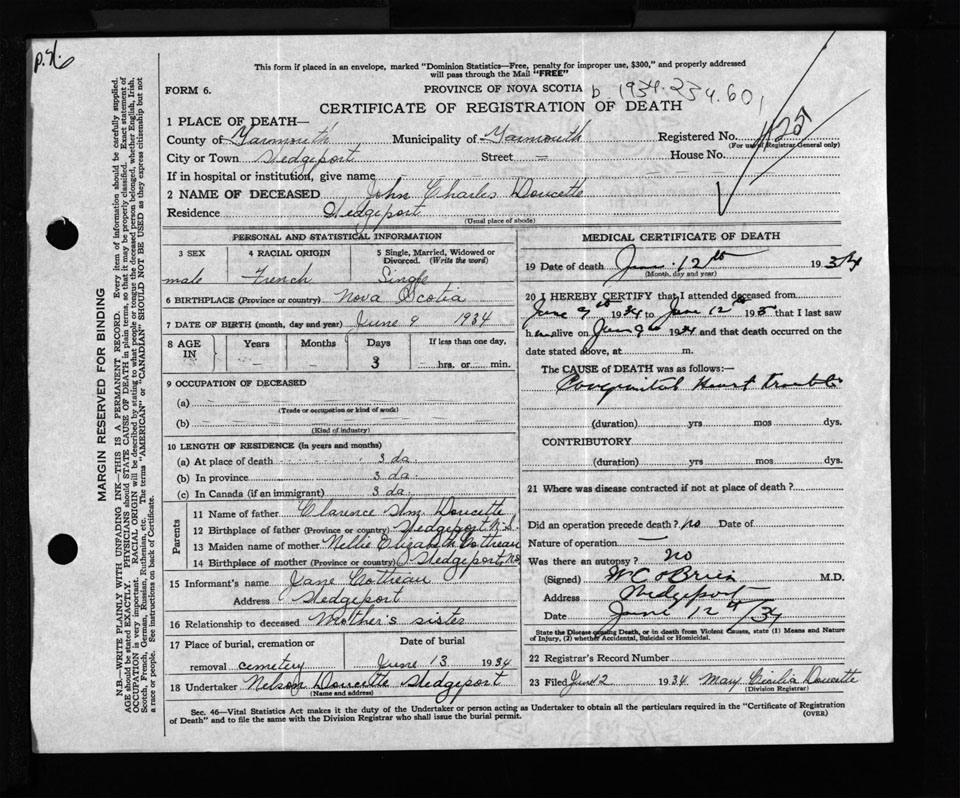 p.76
This form if placed in an envelope, marked "Dominion Statistics—Free, penalty for improper use, $300," and properly addressed
will pass through the Mail "FREE"
FORM 6.
PROVINCE OF NOVA SCOTIA b 1934-234.601
CERTIFICATE OF REGISTRATION OF DEATH
125
1 PLACE OF DEATH—
County of Yarmouth Municipality of Yarmouth Registered No.
(For use of Registrar General only)
City or Town Wedgeport Street — House No.
If in hospital or institution, give name — —
2 NAME OF DECEASED John Charles Doucette
Residence Wedgeport
(Usual place of abode)
PERSONAL AND STATISTICAL INFORMATION
3 SEX 4 RACIAL ORIGIN 5 Single, Married, Widowed or Divorced. (Write the word)
male French Single
6 BIRTHPLACE (Province or country) Nova Scotia
7 DATE OF BIRTH (month, day and year) June 9 1934
8 AGE IN Years Months Days If less than one day,
— — 3 hrs. or min.
9 OCCUPATION OF DECEASED
(a) — — —
(Trade or occupation or kind of work)
(b) — — —
(Kind of industry)
10 LENGTH OF RESIDENCE (In years and months)
(a) At place of death 3 da.
(b) In province 3 da.
(c) In Canada (if an immigrant) 3 da.
Parents
11 Name of father Clarence Wm. Doucette
12 Birthplace of father (Province or country) Wedgeport N.S.
13 Maiden name of mother Nellie Elizabeth Cottreau
14 Birthplace of mother (Province or country) Wedgeport, N.S.
15 Informant's name Jane Cottreau
Address Wedgeport
16 Relationship to deceased Mother's sister
17 Place of burial, cremation or Date of burial
removal cemetery June 13 1934
18 Undertaker Nelson Doucette Wedgeport
(Name and address)
MEDICAL CERTIFICATE OF DEATH
19 Date of death June 12th 1934
(Month, day and year)
20 I HEREBY CERTIFY that I attended deceased from
June 9th 1934 to June 12th 193 that I last saw
h alive on June 9th 1934 and that death occurred on the
date stated above, at m.
The CAUSE of DEATH was as follows:—
Congenital Heart trouble
(duration) yrs mos dys.
CONTRIBUTORY
(duration) yrs mos dys.
21 Where was disease contracted if not at place of death?
Did an operation precede death? no Date of
Nature of operation —
Was there an autopsy? no
(Signed) W C O'Brien M.D.
Address Wedgeport
Date June 12th/34
State the Disease causing Death, or in death from Violent Causes, state (1) Means and Nature
of Injury, (2) whether Accidental, Suicidal or Homicidal.
22 Registrar's Record Number
23 Filed June 12 1934 May Cicilia Doucette
(Division Registrar)
Sec. 46—Vital Statistics Act makes it the duty of the Undertaker or person acting as Undertaker to obtain all the particulars required in the "Certificate of Registration
of Death" and to file the same with the Division Registrar who shall issue the burial permit.
(OVER)
MARGIN RESERVED FOR BINDING
N.B.—WRITE PLAINLY WITH UNFADING INK—THIS IS A PERMANENT RECORD. Every item of information should be carefully supplied.
AGE should be stated EXACTLY. PHYSICIANS should STATE CAUSE OF DEATH in plain terms, so that it may be properly classified. Exact statement of
OCCUPATION is very important. RACIAL ORIGIN will be described by stating to what people or tongue the deceased person belonged, whether English, Irish,
Scotch, French, German, Russian, Ruthenian, etc. The terms "AMERICAN" or "CANADIAN" SHOULD NOT BE USED as they express citizenship but not
a race or people. See instructions on back of Certificate.